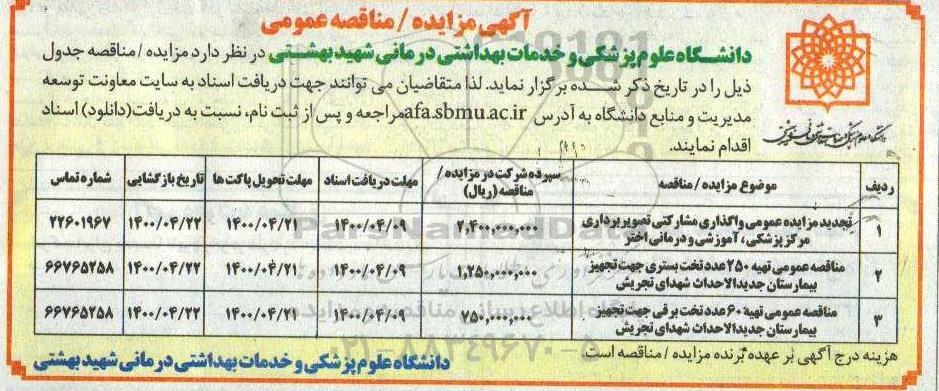 آگهی مزایده / مناقصه عمومی
دانشگاه علوم پزشکی و خدمات بهداشتی درمانی شهید بهشتی در نظر دارد مزایده / مناقصه جدول
ذیل را در تاریخ ذکر شده برگزار نماید. لذا متقاضیان می توانند جهت دریافت اسناد به سایت معاونت توسعه
مدیریت و منابع دانشگاه به آدرس afa.sbmu.ac.ir مراجعه و پس از ثبت نام، نسبت به دریافت (دانلود) اسناد
اقدام نمایند.
ردیف | موضوع مزایده / مناقصه | سپرده شرکت در مزایده / مناقصه (ریال) | مهلت دریافت اسناد | مهلت تحویل پاکت ها | تاریخ بازگشایی | شماره تماس
۱ | تجدید مزایده عمومی واگذاری مشارکتی تصویربرداری مرکز پزشکی، آموزشی و درمانی اختر | ۲,۴۰۰,۰۰۰,۰۰۰ | ۱۴۰۰/۰۴/۰۹ | ۱۴۰۰/۰۴/۲۱ | ۱۴۰۰/۰۴/۲۲ | ۲۲۶۰۱۹۶۷
۲ | مناقصه عمومی تهیه ۲۵۰ عدد تخت بستری جهت تجهیز بیمارستان جدیدالاحداث شهدای تجریش | ۱,۲۵۰,۰۰۰,۰۰۰ | ۱۴۰۰/۰۴/۰۹ | ۱۴۰۰/۰۴/۲۱ | ۱۴۰۰/۰۴/۲۲ | ۶۶۷۶۵۲۵۸
۳ | مناقصه عمومی تهیه ۶۰ عدد تخت برقی جهت تجهیز بیمارستان جدیدالاحداث شهدای تجریش | ۷۵۰,۰۰۰,۰۰۰ | ۱۴۰۰/۰۴/۰۹ | ۱۴۰۰/۰۴/۲۱ | ۱۴۰۰/۰۴/۲۲ | ۶۶۷۶۵۲۵۸
هزینه درج آگهی بر عهده برنده مزایده / مناقصه است.
دانشگاه علوم پزشکی و خدمات بهداشتی درمانی شهید بهشتی
ParsNamadData
۰۲۱-۸۸۳۴۹۶۷۰-۵